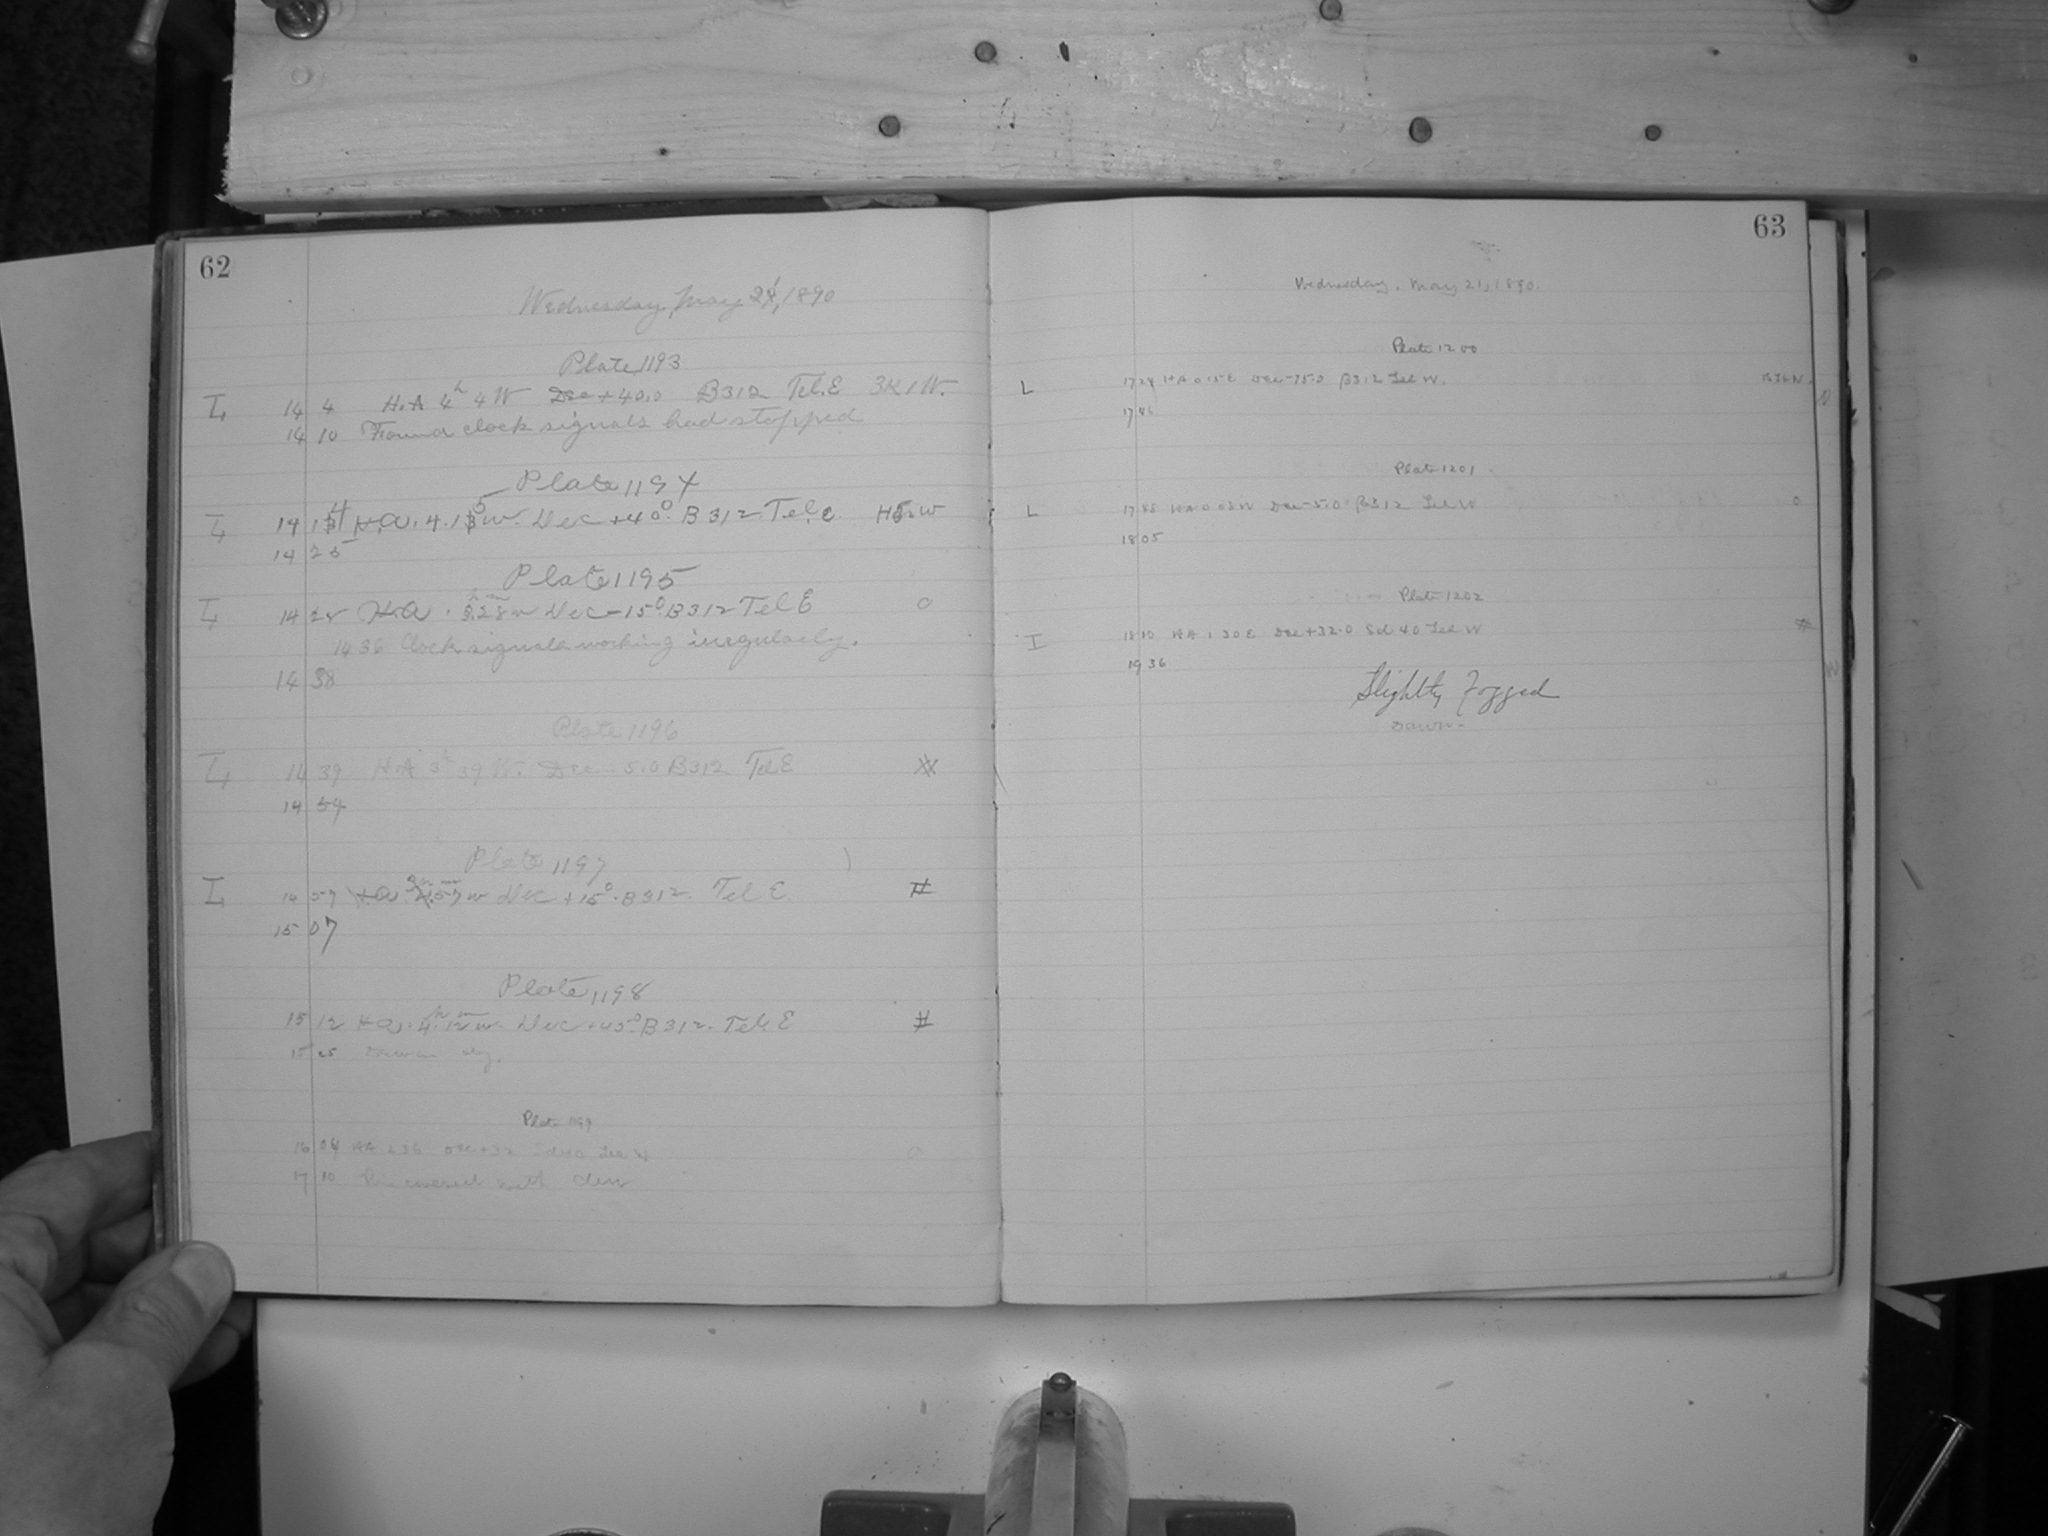 62
Wednesday, May 21, 1890
Plate 1193
L 14 4 H.A 4h 4 W Dec +40.0 B312 Tel. E
14 10 Found clock signals had stopped
Plate 1194
L 14 14 H.A. 4.15 W. Dec +40°. B 312 Tel. E.
14 25
Plate 1195
L 14 28 H.A. 3h 28m W Dec -15°. B312 Tel E 0
14 36 Clock signals working irregularly.
14 38
Plate 1196
L 14 39 H.A 3h 39 W. Dec -5.0 B312 Tel E #
14 54
Plate 1197
L 14 57 H.A. 57 W Dec +15°. B312. Tel E. #
15 07
Plate 1198
15 12 H.A. 4h 12m W. Dec +45° B312. Tel. E #
15 25
Plate 1199
16 04 HA Dec +32 Sd 40 Tel 0
17 10 covered with dew
63
Wednesday, May 21, 1890.
Plate 1200
L 17 24 HA 0 15 E Dec -75.0 B312 Tel W.
17 45
Plate 1201
L 17 48 HA 0 03 W Dec -5.0 B312 Tel W 0
18 05
Plate 1202
I 18 10 HA 1 30 E Dec +32.0 Sd 40 Tel W #
19 36
Slightly Fogged
Dawn-